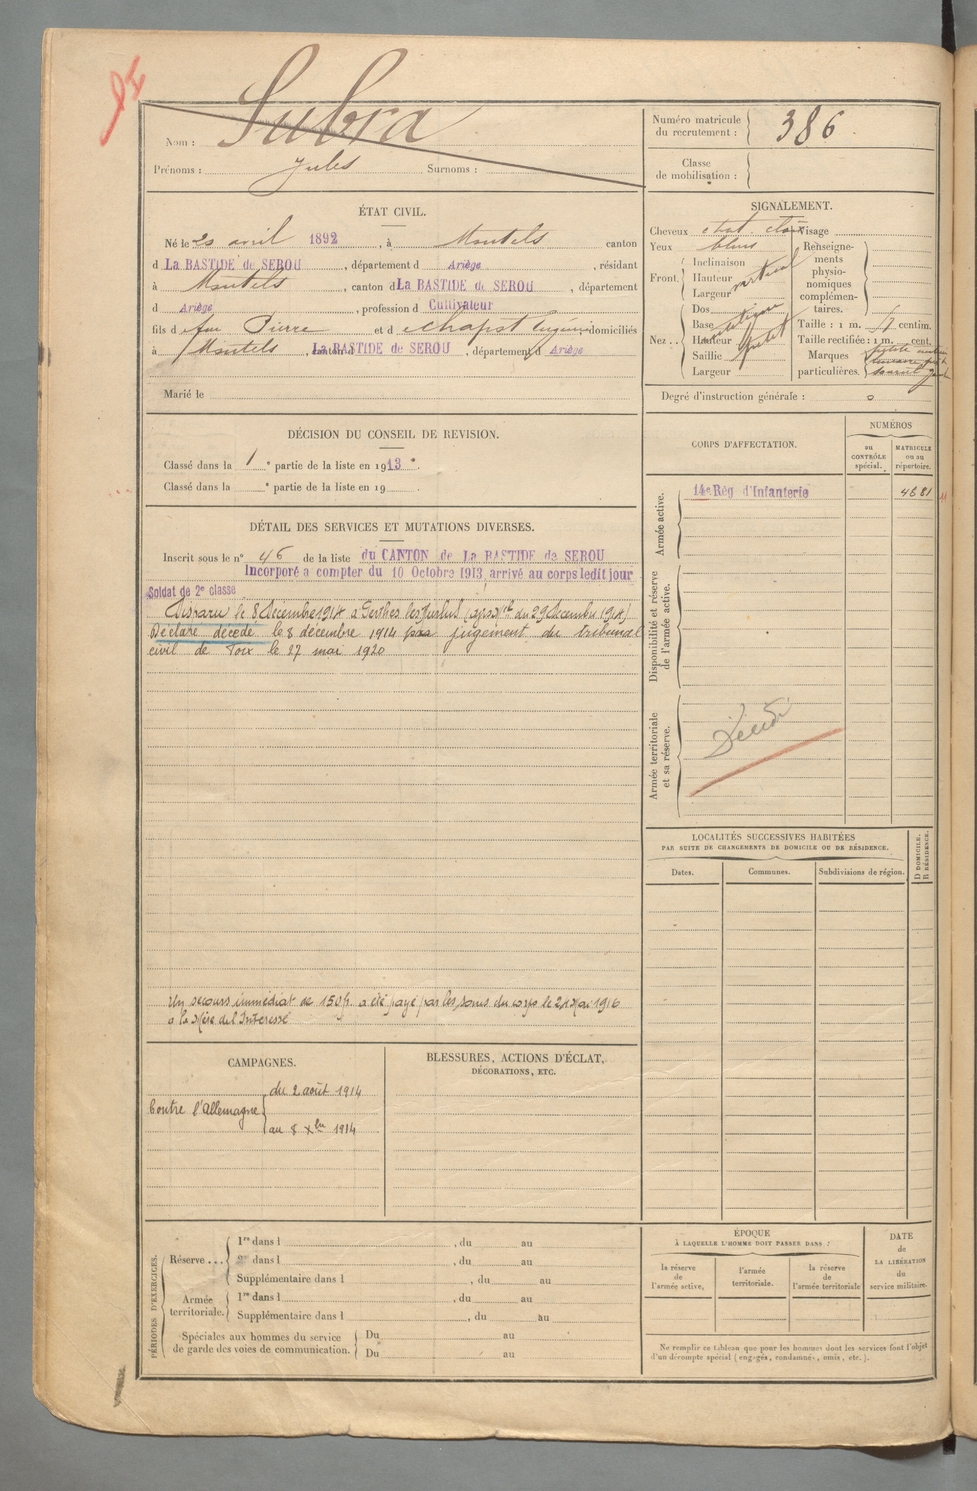 Subra
Nom :
Prénoms : Jules Surnoms :
Numéro matricule du recrutement : 386
Classe de mobilisation :
ÉTAT CIVIL.
Né le 20 avril 1892, à Montels canton
d La BASTIDE de SEROU, département d Ariège, résidant
à Montels, canton d La BASTIDE de SEROU, département
d Ariège, profession d Cultivateur
fils de feu Pierre et d domiciliés
à Montels, canton d La BASTIDE de SEROU, département d Ariège
Marié le
SIGNALEMENT.
Cheveux chat clair Visage
Yeux bleus Renseignements physionomiques complémentaires.
Front. Inclinaison vertical
Hauteur
Largeur
Nez... Dos
Base
Hauteur
Saillie
Largeur
Taille : 1 m. centim.
Taille rectifiée : 1 m. cent.
Marques particulières.
Degré d'instruction générale : 0
DÉCISION DU CONSEIL DE REVISION.
Classé dans la 1e partie de la liste en 1913.
Classé dans la e partie de la liste en 19 .
DÉTAIL DES SERVICES ET MUTATIONS DIVERSES.
Inscrit sous le n° 46 de la liste du CANTON de La BASTIDE de SEROU
Incorporé a compter du 10 Octobre 1913, arrivé au corps ledit jour
Soldat de 2e classe
Disparu le 8 Décembre 1914 à Perthes les Hurlus du 29 Décembre 1914)
Déclaré décédé le 8 décembre 1914 par jugement du tribunal
civil de Foix le 27 mai 1920
Un secours immédiat de 150 f. a été payé par les soins du corps le 21 Mai 1916
a la Mère de l'Intéressé
CORPS D'AFFECTATION.
NUMÉROS
au CONTRÔLE spécial.
MATRICULE ou au répertoire.
Armée active.
14e Rég d'Infanterie 4681
Disponibilité et réserve de l'armée active.
Armée territoriale et sa réserve.
Décédé
LOCALITÉS SUCCESSIVES HABITÉES
PAR SUITE DE CHANGEMENTS DE DOMICILE OU DE RÉSIDENCE.
Dates. Communes. Subdivisions de région. D DOMICILE. R RÉSIDENCE.
CAMPAGNES.
Contre l'Allemagne du 2 août 1914
au 8 Xbre 1914
BLESSURES, ACTIONS D'ÉCLAT,
DÉCORATIONS, ETC.
PÉRIODES D'EXERCICES.
Réserve... 1re dans l , du au
2e dans l , du au
Supplémentaire dans l , du au
Armée territoriale. 1re dans l , du au
Supplémentaire dans l , du au
Spéciales aux hommes du service de garde des voies de communication. Du au
Du au
ÉPOQUE
À LAQUELLE L'HOMME DOIT PASSER DANS :
la réserve de l'armée active,
l'armée territoriale.
la réserve de l'armée territoriale
DATE de LA LIBÉRATION du service militaire.
Ne remplir ce tableau que pour les hommes dont les services font l'objet
d'un décompte spécial (engagés, condamnés, omis, etc.).